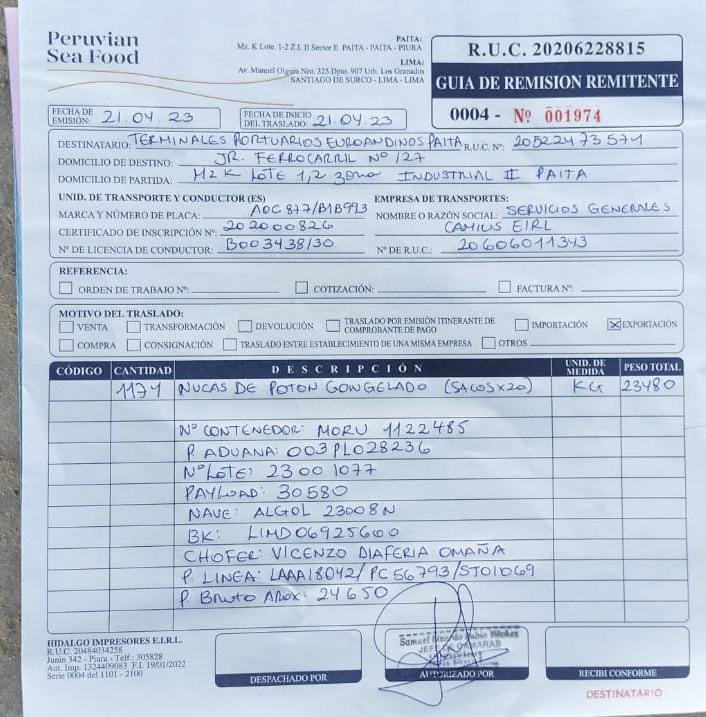 Peruvian
Sea Food
PAITA:
Mz. K Lote. 1-2 Z.I. II Sector E PAITA - PAITA - PIURA
LIMA:
Av. Manuel Olguin Nro. 325 Dpto. 907 Urb. Los Granados
SANTIAGO DE SURCO - LIMA - LIMA
R.U.C. 20206228815
GUIA DE REMISION REMITENTE
0004 - Nº 001974
FECHA DE EMISIÓN: 21.04.23
FECHA DE INICIO DEL TRASLADO: 21.04.23
DESTINATARIO: TERMINALES PORTUARIOS EUROANDINOS PAITA R.U.C. Nº: 20522473571
DOMICILIO DE DESTINO: JR. FERROCARRIL Nº 127
DOMICILIO DE PARTIDA: MZ K LOTE 1,2 zona INDUSTRIAL II PAITA
UNID. DE TRANSPORTE Y CONDUCTOR (ES)
MARCA Y NÚMERO DE PLACA: AOC 877/B1B993
CERTIFICADO DE INSCRIPCIÓN Nº: 202000826
Nº DE LICENCIA DE CONDUCTOR: B003438130
EMPRESA DE TRANSPORTES:
NOMBRE O RAZÓN SOCIAL: SERVICIOS GENERALES
CAMIUS EIRL
Nº DE R.U.C.: 20606011343
REFERENCIA:
ORDEN DE TRABAJO Nº: COTIZACIÓN: FACTURA Nº:
MOTIVO DEL TRASLADO:
VENTA TRANSFORMACIÓN DEVOLUCIÓN TRASLADO POR EMISIÓN ITINERANTE DE COMPROBANTE DE PAGO IMPORTACIÓN EXPORTACIÓN
COMPRA CONSIGNACIÓN TRASLADO ENTRE ESTABLECIMIENTO DE UNA MISMA EMPRESA OTROS
CÓDIGO CANTIDAD DESCRIPCIÓN UNID. DE MEDIDA PESO TOTAL
1174 NUCAS DE POTON CONGELADO (SACOSX20) KG 23480
Nº CONTENEDOR: MORU 1122485
P. ADUANA: 003PL028236
Nº LOTE: 23001077
PAYLOAD: 30580
NAVE: ALGOL 23008N
BK: LIMD06925600
CHOFER: VICENZO DIAFERIA OMAÑA
P. LINEA: LAAA18042/PC56793/STOID69
P. Bruto Arox: 24650
HIDALGO IMPRESORES E.I.R.L.
R.U.C. 20484034258
Junin 342 - Piura - Telf.: 305828
Aut. Imp. 1324409083 F.I. 19/01/2022
Serie 0004 del 1101 - 2100
DESPACHADO POR
JEFE DE CAMARAS
AUTORIZADO POR
RECIBI CONFORME
DESTINATARIO